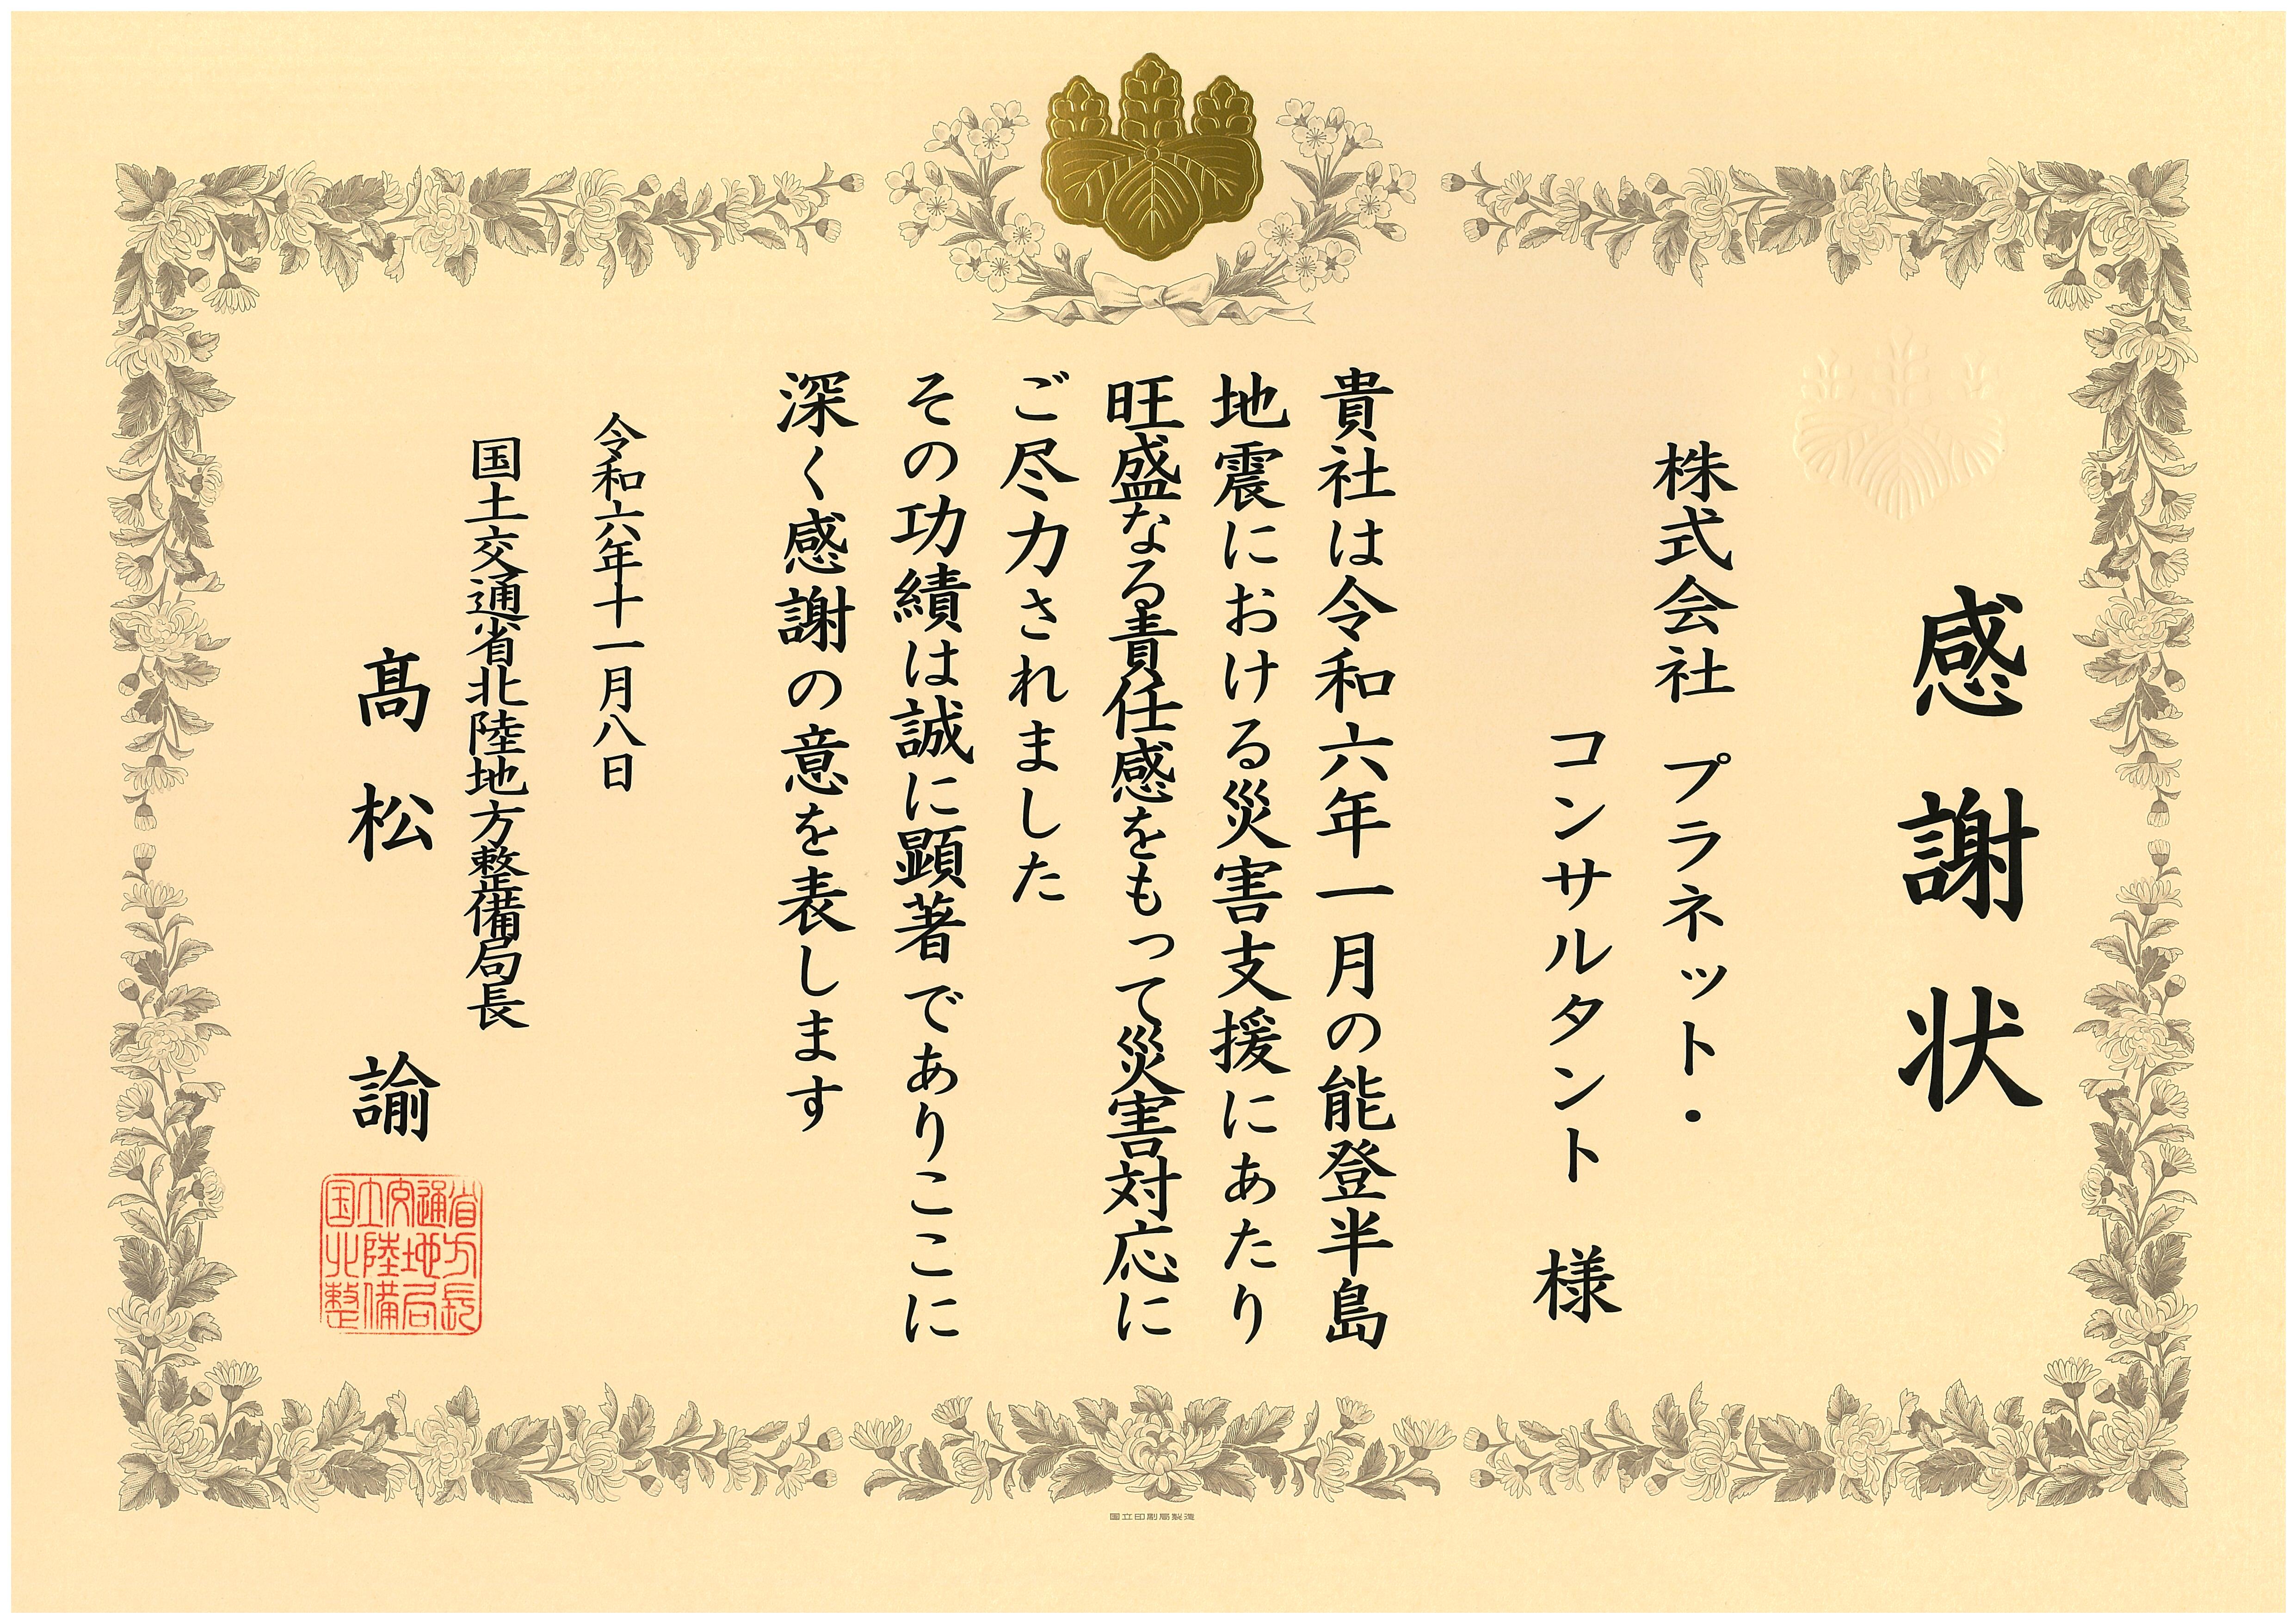 感謝状
株式会社 プラネット・
コンサルタント 様
貴社は令和六年一月の能登半島
地震における災害支援にあたり
旺盛なる責任感をもって災害対応に
ご尽力されました
その功績は誠に顕著でありここに
深く感謝の意を表します
令和六年十一月八日
国土交通省北陸地方整備局長
髙松 諭
国土交通省
北陸地方
整備局長
国立印刷局製造